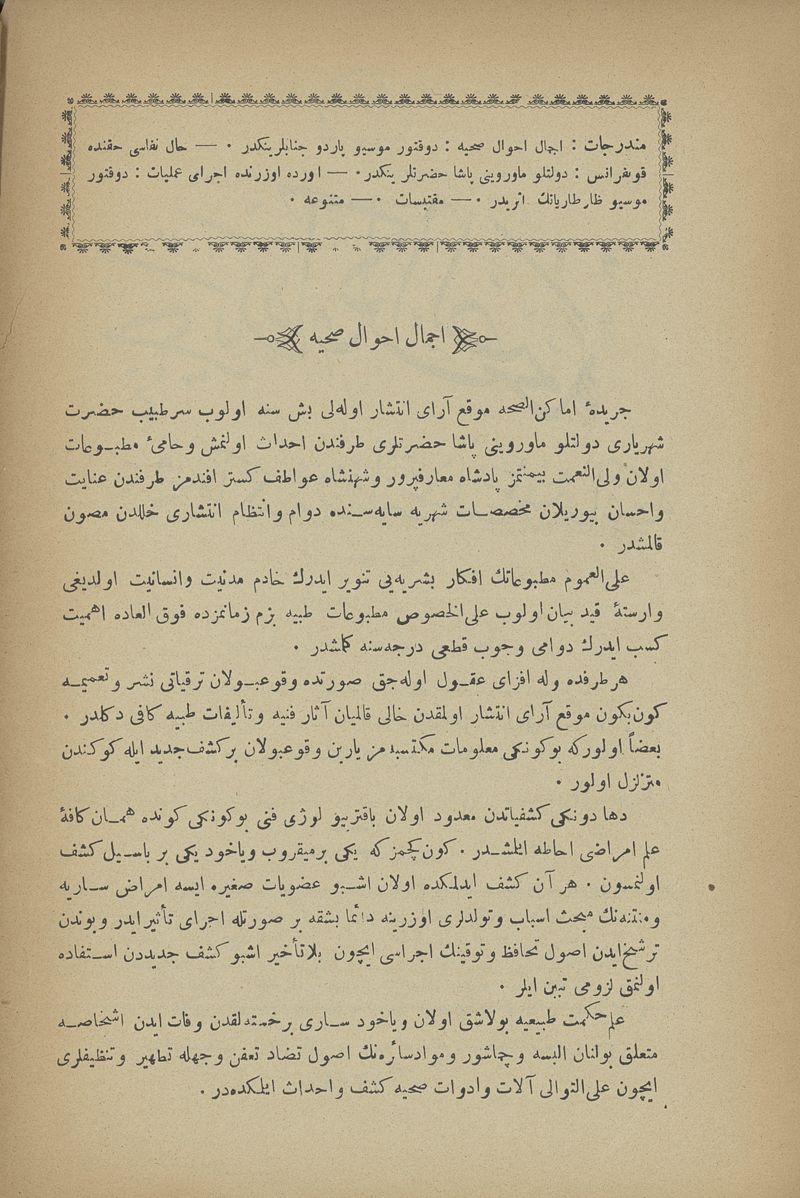 مندرجات : اجمال احوال صحیه : دوقتور موسیو پاردو جنابلرینكدر ۰ — حال نفاسی حقنده
قونفرانس : دولتلو ماوروینی پاشا حضرتلرینكدر۰ — اورده اوزرنده اجرای عملیات : دوقتور
موسیو ظارطاریانك اثریدر ۰ — مقتبسات ۰ — متنوعه ۰
اجمال احوال صحیه
جریدهٔ اماكن‌الصحه موقع آرای انتشار اوله‌لی بش سنه اولوب سرطبیب حضرت
شهریاری دولتلو ماوروینی پاشا حضرتلری طرفندن احداث اولنمش وحامیٔ مطبوعات
اولان ولی‌النعمت بیمنتمز پادشاه معارفپرور وشهنشاه عواطف كستر افندمز طرفندن عنایت
واحسان بیوریلان مخصصات شهریه سایه‌سنده دوام وانتظام انتشاری خللدن مصون
قالمشدر ۰
علی‌العموم مطبوعاتك افكار بشریه‌یی تنویر ایدرك خادم مدنیت وانسانیت اولدیغی
وارستهٔ قید بیان اولوب علی‌الخصوص مطبوعات طبیه بزم زمانمزده فوق العاده اهمیت
كسب ایدرك دوامی وجوب قطعی درجه‌سنه كلمشدر ۰
هر طرفده وله افزای عقول اوله‌جق صورتده وقوعبولان ترقیاتی نشر وتعمیمه
كون‌بكون موقع آرای انتشار اولمقدن خالی قالمیان آثار فنیه وتألیفات طبیه كافی دكلدر ۰
بعضاً اولوركه بوكونكی معلومات مكتسبه‌مز یارین وقوعبولان بركشف جدید ایله كوكندن
متزلزل اولور ۰
دها دونكی كشفیاتدن معدود اولان باقتریولوژی فنی بوكونكی كونده همان كافهٔ
علم امراضی احاطه ایلمشدر ۰ كون كچمزكه یكی برمیقروب ویاخود یكی بر باسیل كشف
اولنمسون ۰ هر آن كشف ایدلمكده اولان اشبو عضویات صغیره ایسه امراض ساریه
ومنتنه‌نك مبحث اسباب وتولدلری اوزرینه دائما بشقه بر صورتله اجرای تأثیر ایدر وبوندن
ترشح‌ایدن اصول تحافظ وتوقینك اجراسی ایچون بلاتأخیر اشبو كشف جدیددن استفاده
اولنمق لزومی تبین ایلر ۰
علم‌حكمت طبیعیه بولاشق اولان ویاخود ساری برخسته‌لقدن وفات ایدن اشخاصه
متعلق بولنان البسه وچماشور وموادسائره‌نك اصول تضاد تعفن وجهله تطهیر وتنظیفلری
ایچون علی‌التوالی آلات وادوات صحیه كشف واحداث ایلمكده‌در ۰